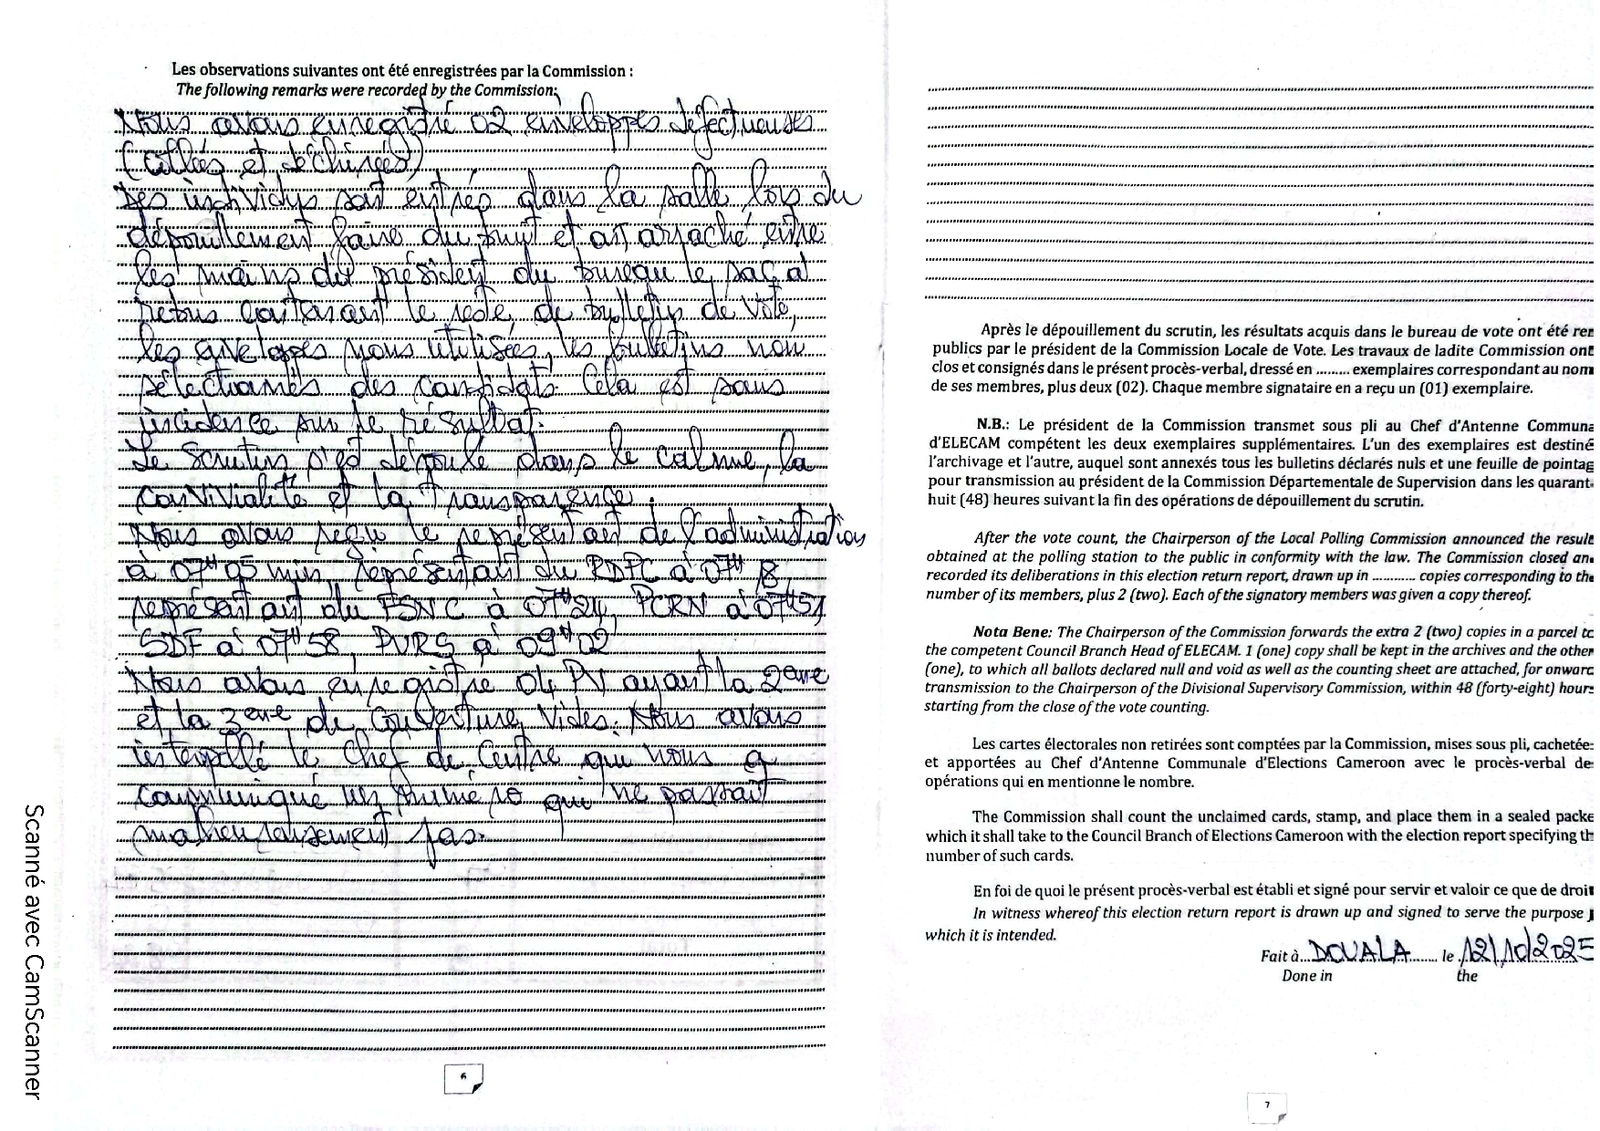 Les observations suivantes ont été enregistrées par la Commission :
The following remarks were recorded by the Commission:
Nous avons enregistré 02 enveloppes défectueuses
(collées et déchirées)
Des individus sont entrés dans la salle lors du
dépouillement faire du bruit et ont arraché entre
les mains du président du bureau le sac à
rebus contenant le reste de bulletin de vote,
les enveloppes nous utilisées, les bulletins non
sélectionnés des candidats. Cela est sans
incidence sur le résultat.
Le scrutin s'est déroulé dans le calme, la
convivialité et la transparence.
Nous avons reçu le représentant de l'administration
à 07H 05 min, représentant du RDPC à 07H
représentant du FSNC à 07H24, PCRN à 07H51
SDF à 07H58, PURS à 09H02
Nous avons enregistré 04 PV ayant la 2eme
et la 3eme de couverture vides. Nous avons
interpellé le chef de centre qui nous a
communiqué un numéro qui ne passait
malheureusement pas.
6
Scanné avec CamScanner
Après le dépouillement du scrutin, les résultats acquis dans le bureau de vote ont été ren
publics par le président de la Commission Locale de Vote. Les travaux de ladite Commission ont
clos et consignés dans le présent procès-verbal, dressé en ......... exemplaires correspondant au nom
de ses membres, plus deux (02). Chaque membre signataire en a reçu un (01) exemplaire.
N.B.: Le président de la Commission transmet sous pli au Chef d'Antenne Communa
d'ELECAM compétent les deux exemplaires supplémentaires. L'un des exemplaires est destiné
l'archivage et l'autre, auquel sont annexés tous les bulletins déclarés nuls et une feuille de pointag
pour transmission au président de la Commission Départementale de Supervision dans les quarant-
huit (48) heures suivant la fin des opérations de dépouillement du scrutin.
After the vote count, the Chairperson of the Local Polling Commission announced the result
obtained at the polling station to the public in conformity with the law. The Commission closed an
recorded its deliberations in this election return report, drawn up in ........... copies corresponding to the
number of its members, plus 2 (two). Each of the signatory members was given a copy thereof.
Nota Bene: The Chairperson of the Commission forwards the extra 2 (two) copies in a parcel to
the competent Council Branch Head of ELECAM. 1 (one) copy shall be kept in the archives and the other
(one), to which all ballots declared null and void as well as the counting sheet are attached, for onward
transmission to the Chairperson of the Divisional Supervisory Commission, within 48 (forty-eight) hours
starting from the close of the vote counting.
Les cartes électorales non retirées sont comptées par la Commission, mises sous pli, cachetée
et apportées au Chef d'Antenne Communale d'Elections Cameroon avec le procès-verbal de
opérations qui en mentionne le nombre.
The Commission shall count the unclaimed cards, stamp, and place them in a sealed packe
which it shall take to the Council Branch of Elections Cameroon with the election report specifying th
number of such cards.
En foi de quoi le présent procès-verbal est établi et signé pour servir et valoir ce que de droit
In witness whereof this election return report is drawn up and signed to serve the purpose
which it is intended.
Fait à...DOUALA....... le 12/10/2025
Done in the
7